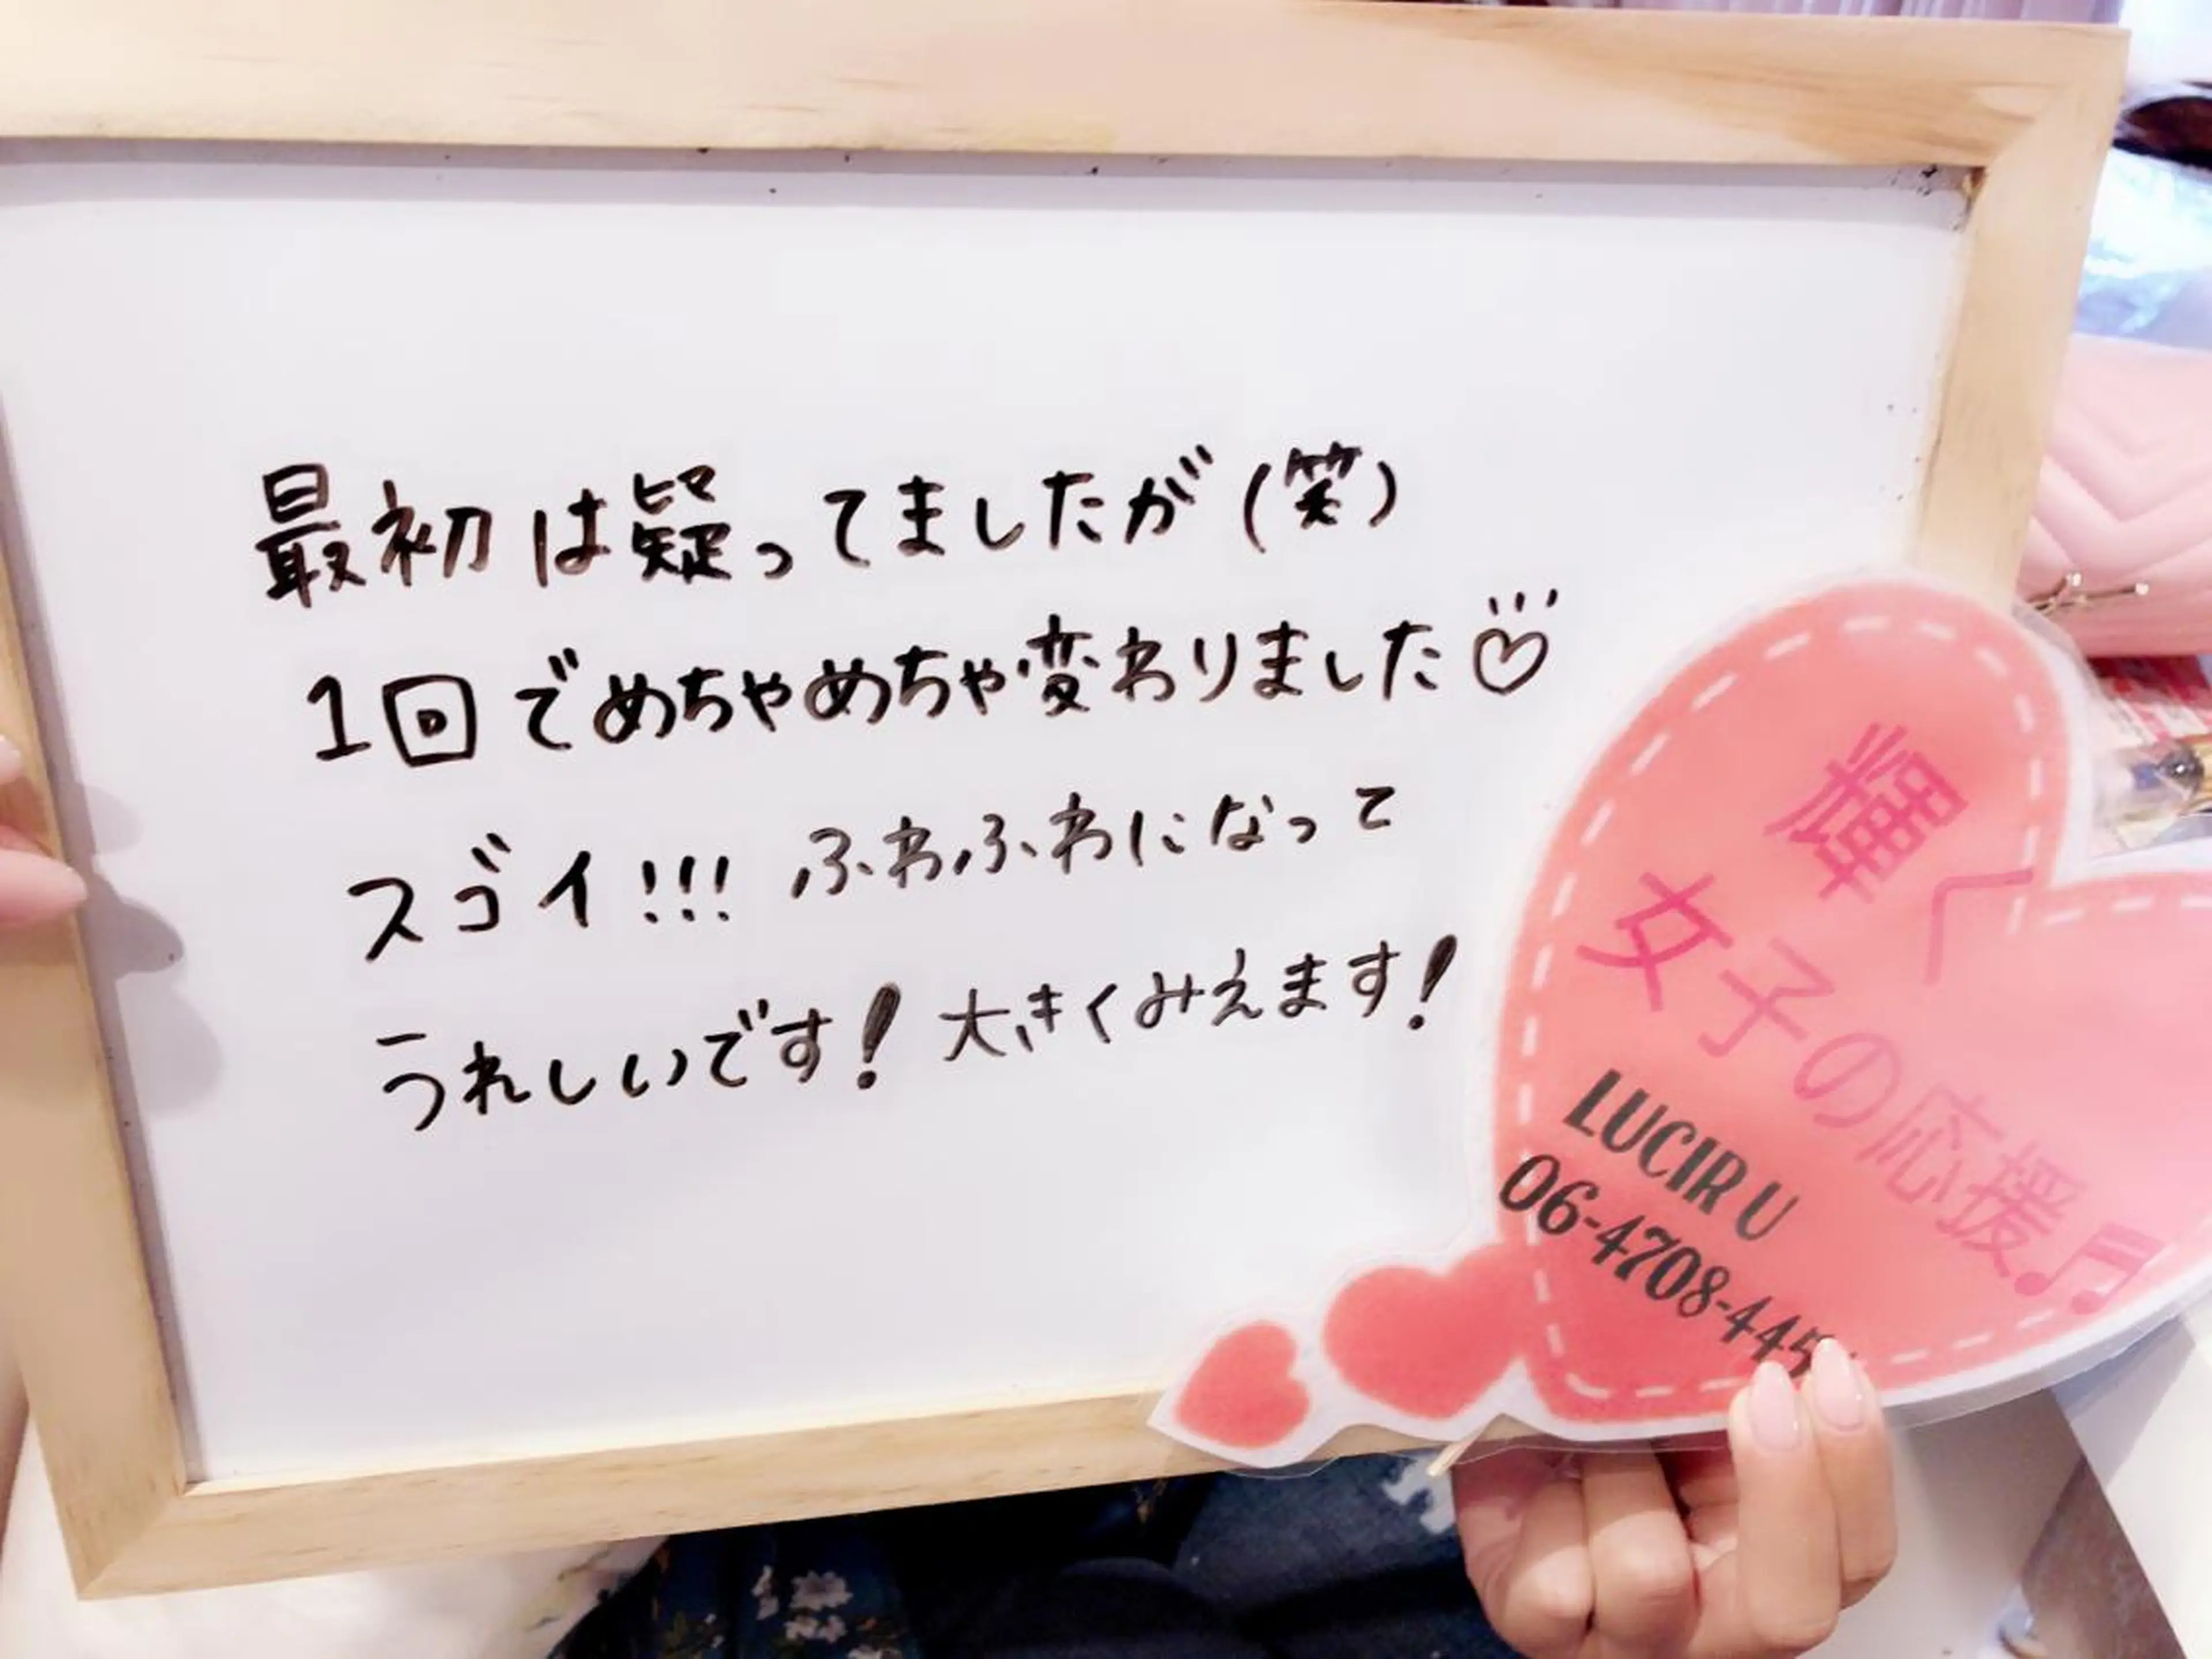 最初は疑ってましたが(笑)
1回でめちゃめちゃ変わりました♡
スゴイ!!! ふわふわになって
うれしいです!大きくみえます!
輝く
女子の応援♬
LUCIR U
06-4708-445